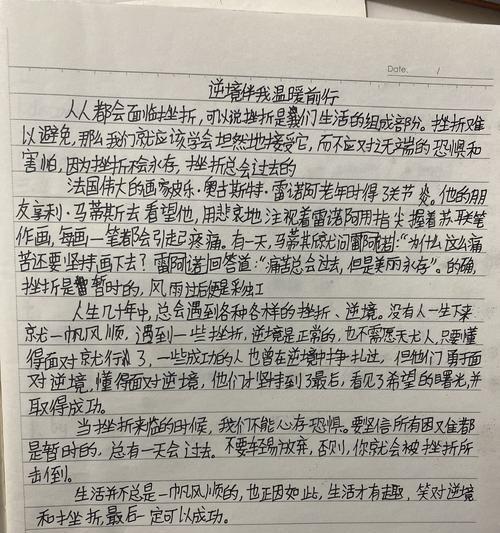 Date. /
逆境伴我温暖前行
人人都会面临挫折,可以说挫折是我们生活的组成部分。挫折难
以避免,那么我们就应该学会坦然地接受它,而不应对之无端的恐惧和
害怕,因为挫折不会永存,挫折总会过去的
法国伟大的画家皮乐·奥古斯特·雷诺阿老年时得了关节炎。他的朋
友享利·马蒂斯去看望他,用悲哀地注视着雷诺阿用指尖握着笔
作画,每画一笔都会引起疼痛。有一天,马蒂斯就问雷阿诺:“为什么这么痛
苦还要坚持画下去?雷阿诺回答道:“痛苦总会过去,但是美丽永存”。的确,
挫折是暂时的,风雨过后便是彩虹
人生几十年中,总会遇到各种各样的挫折、逆境。没有人一生下来
就一帆风顺,遇到一些挫折,逆境是正常的,也不需怨天尤人,只要懂
得面对就行了,一些成功的人也曾在逆境中挣扎过,但他们勇于面
对逆境,懂得面对逆境,他们才坚持到了最后,看见了希望的曙光,并
取得成功。
当挫折来临的时候,我们不能心存恐惧。要坚信所有困难都
是暂时的,总有一天会过去。不要轻易放弃,否则,你就会被挫折所
击倒。
生活并不总是一帆风顺的,也正因如此,生活才有趣,笑对逆境
和挫折,最后一定可以成功。